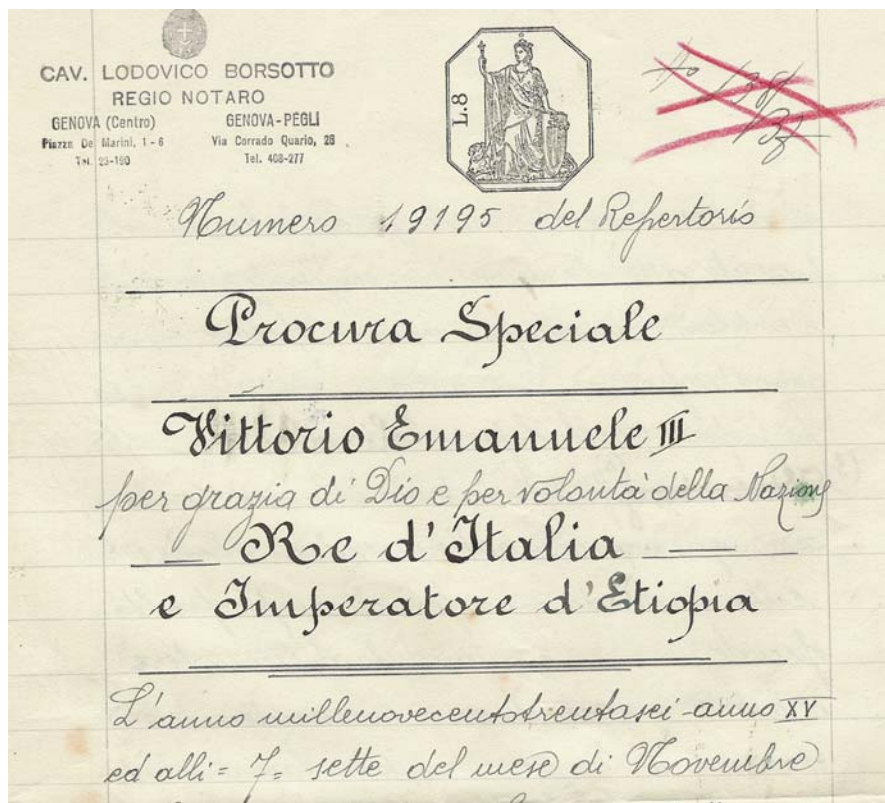 CAV. LODOVICO BORSOTTO
REGIO NOTARO
GENOVA (Centro) GENOVA-PEGLI
Piazza De Marini, 1 - 6 Via Corrado Quario, 28
Tel. 25-190 Tel. 408-277
L.8
Numero 19195 del Repertorio
Procura Speciale
Vittorio Emanuele III
per grazia di Dio e per volontà della Nazione
Re d'Italia
e Imperatore d'Etiopia
L'anno millenovecentotrentasei-anno XV
ed alli = 7 = sette del mese di Novembre